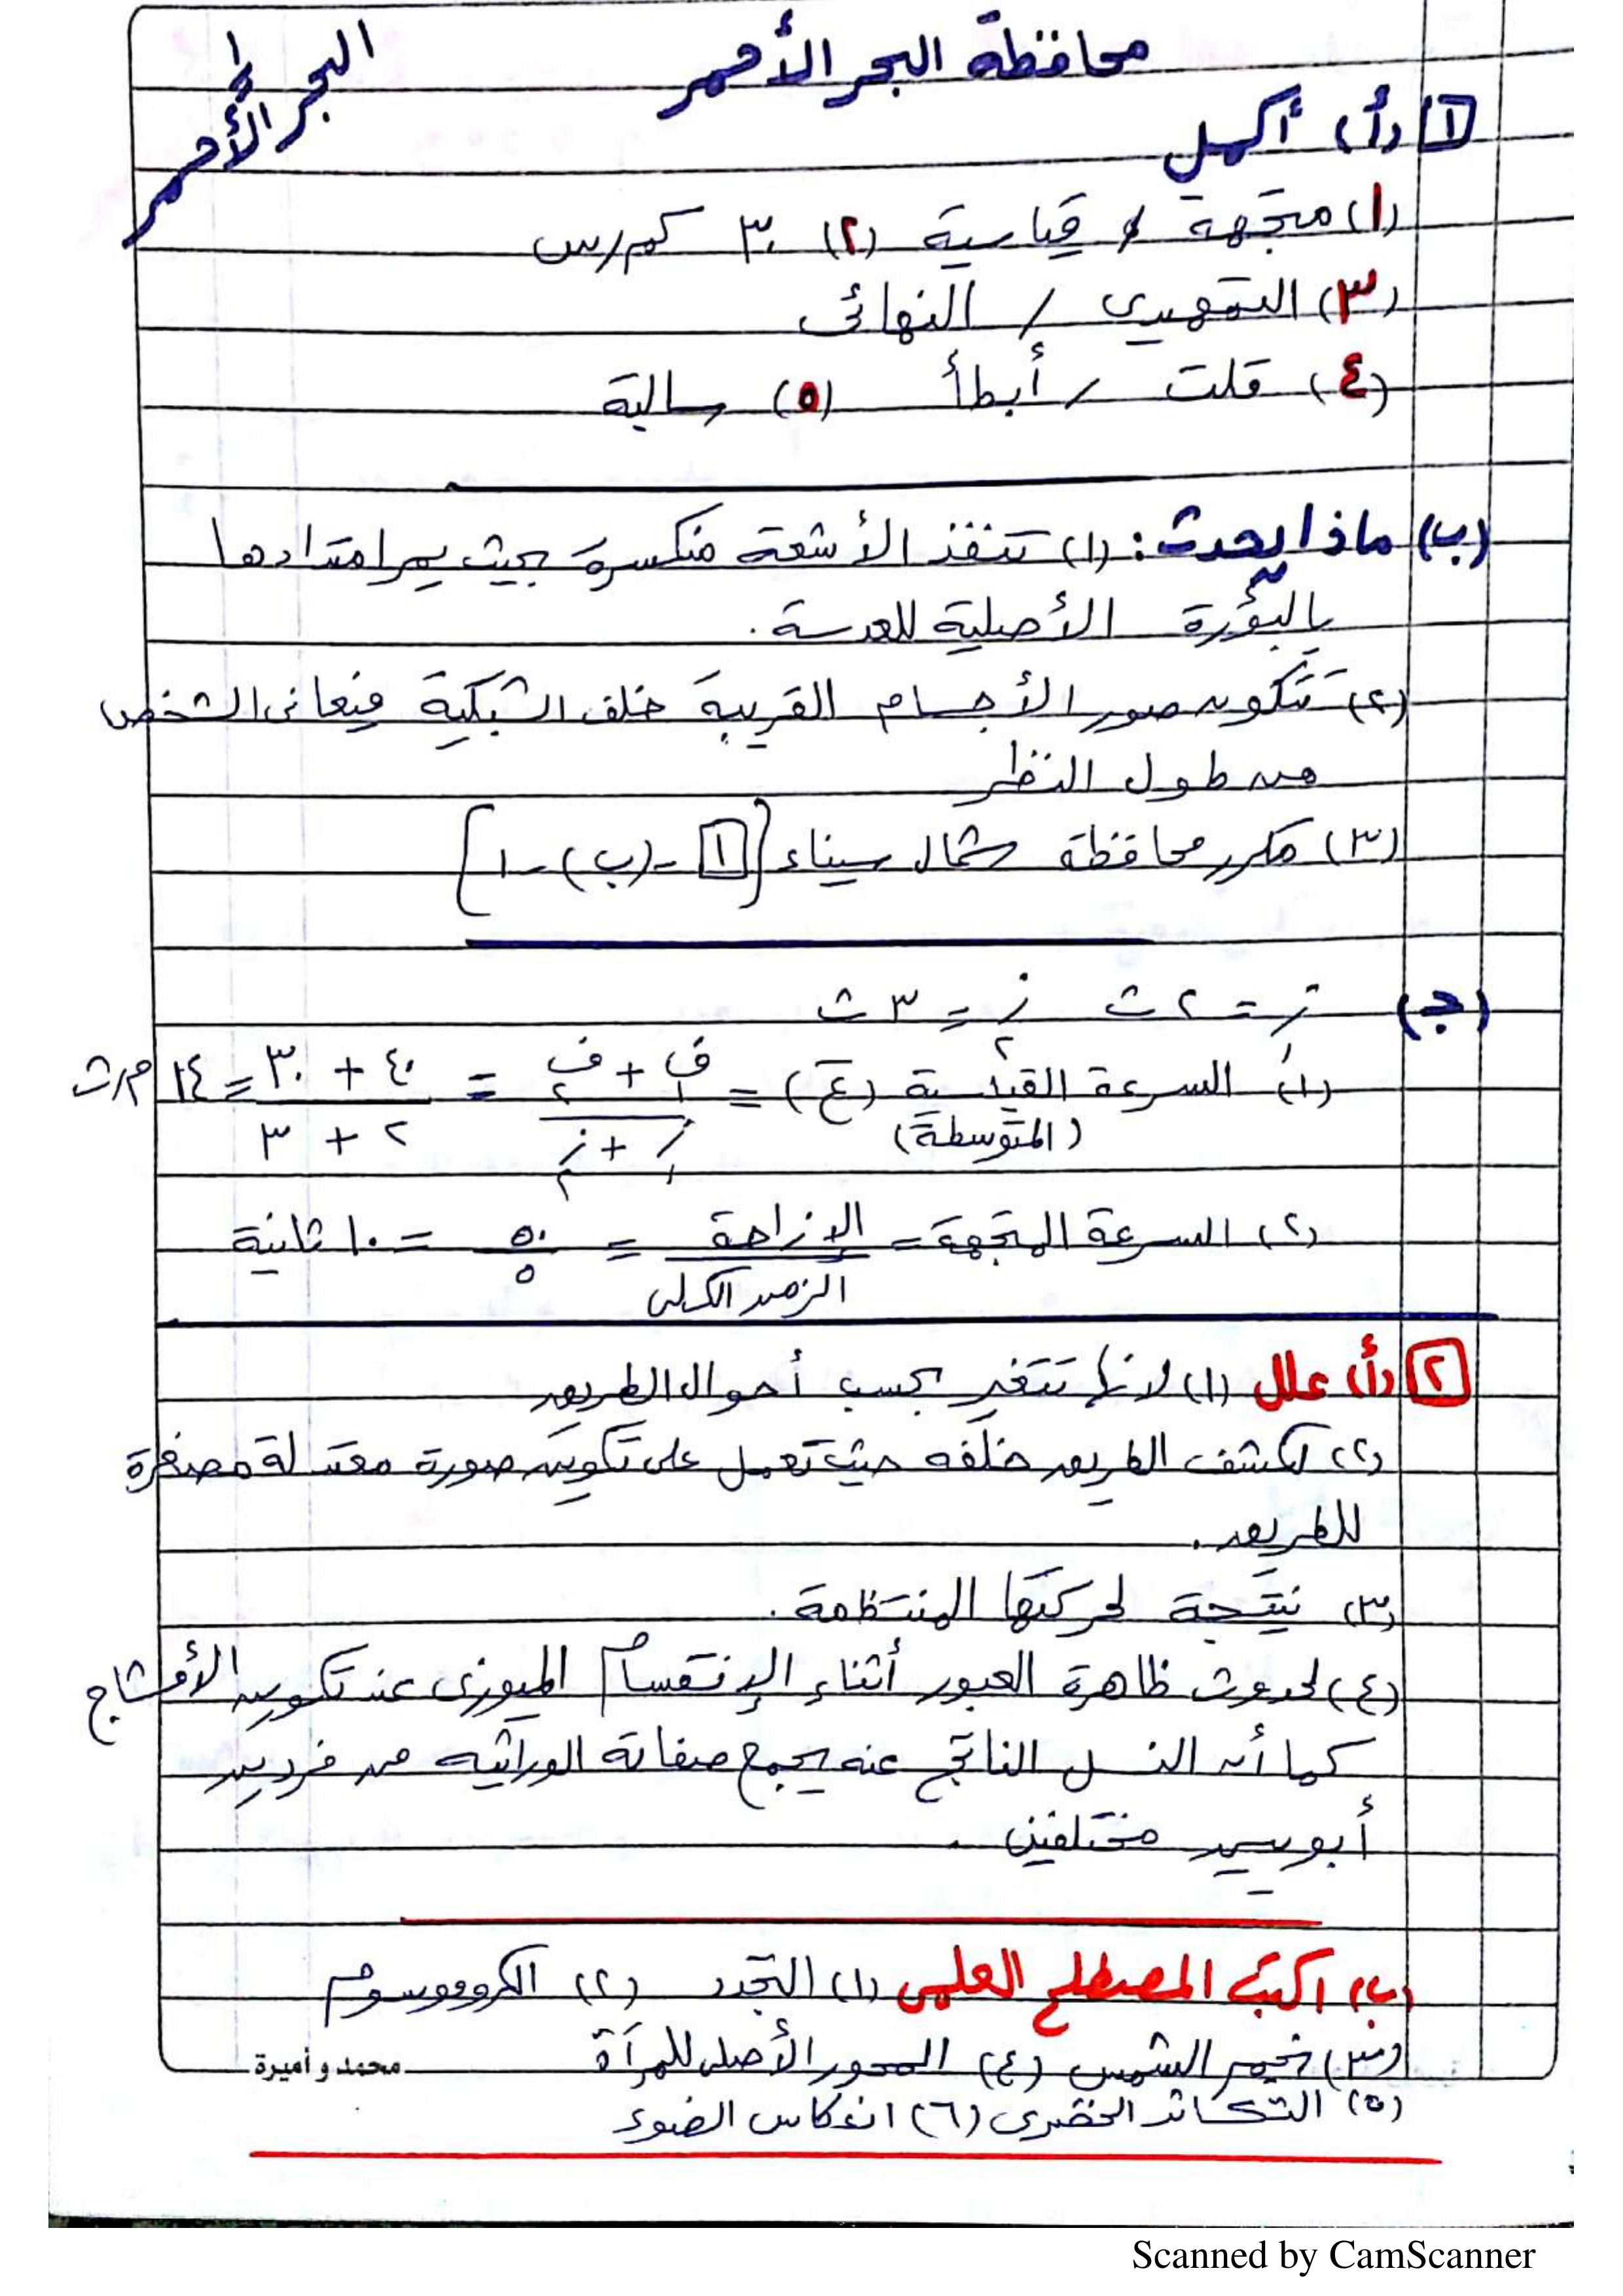 محافظة البحر الأحمر
البحر الأحمر
١ (أ) أكمل
(١) متجهة / قياسية (٢) ٣٠ كم/س
(٣) التمهيدى / النهائى
(٤) قلت / أبطأ (٥) سالبة
(ب) ماذا يحدث : (١) تنفذ الأشعة منكسرة بحيث يمر امتدادها
بالبؤرة الأصلية للعدسة .
(٢) تتكون صور الأجسام القريبة خلف الشبكية فيعانى الشخص
من طول النظر
(٣) مكرر محافظة شمال سيناء [١ - (ب) - ١]
(ج) ز١ = ٢ ث ز٢ = ٣ ث
(١) السرعة القياسية (ع) = ف١ + ف٢ = ٤٠ + ٣٠ = ١٤ م/ث
(المتوسطة) ز١ + ز٢ ٢ + ٣
(٢) السرعة المتجهة = الإزاحة = ٥٠ = ١٠ ثانية
الزمن الكلى ٥
٢ (أ) علل (١) لأنها تتغير بحسب أحوال الطريق
(٢) لكشف الطريق خلفه حيث تعمل على تكوين صورة معتدلة مصغرة
للطريق .
(٣) نتيجة لحركتها المنتظمة .
(٤) لحدوث ظاهرة العبور أثناء الإنقسام الميوزى عند تكوين الأمشاج
كما أن النسل الناتج عنه يجمع صفاته الوراثيه من فردين
أبويين مختلفين .
(ب) اكتب المصطلح العلمى (١) التجدد (٢) الكروموسوم
(٣) نجم الشمس (٤) المحور الأصلى للمرآة
محمد و أميرة
(٥) التكاثر الخضرى (٦) انعكاس الضوء
Scanned by CamScanner